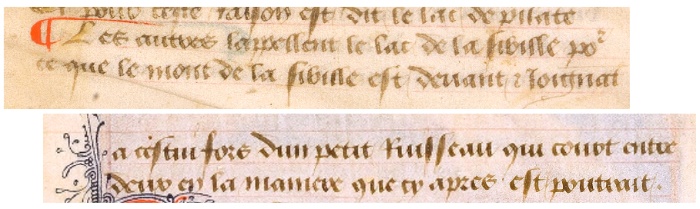 pour ceste raison est dit le lac de pilate
Les autres lappellent le lac de la sibille por
ce que le mont de la sibille est deuant & Joignat
a cestui fors dun petit Ruisseau qui court entre
deux en la maniere que cy apres est pourtrait.